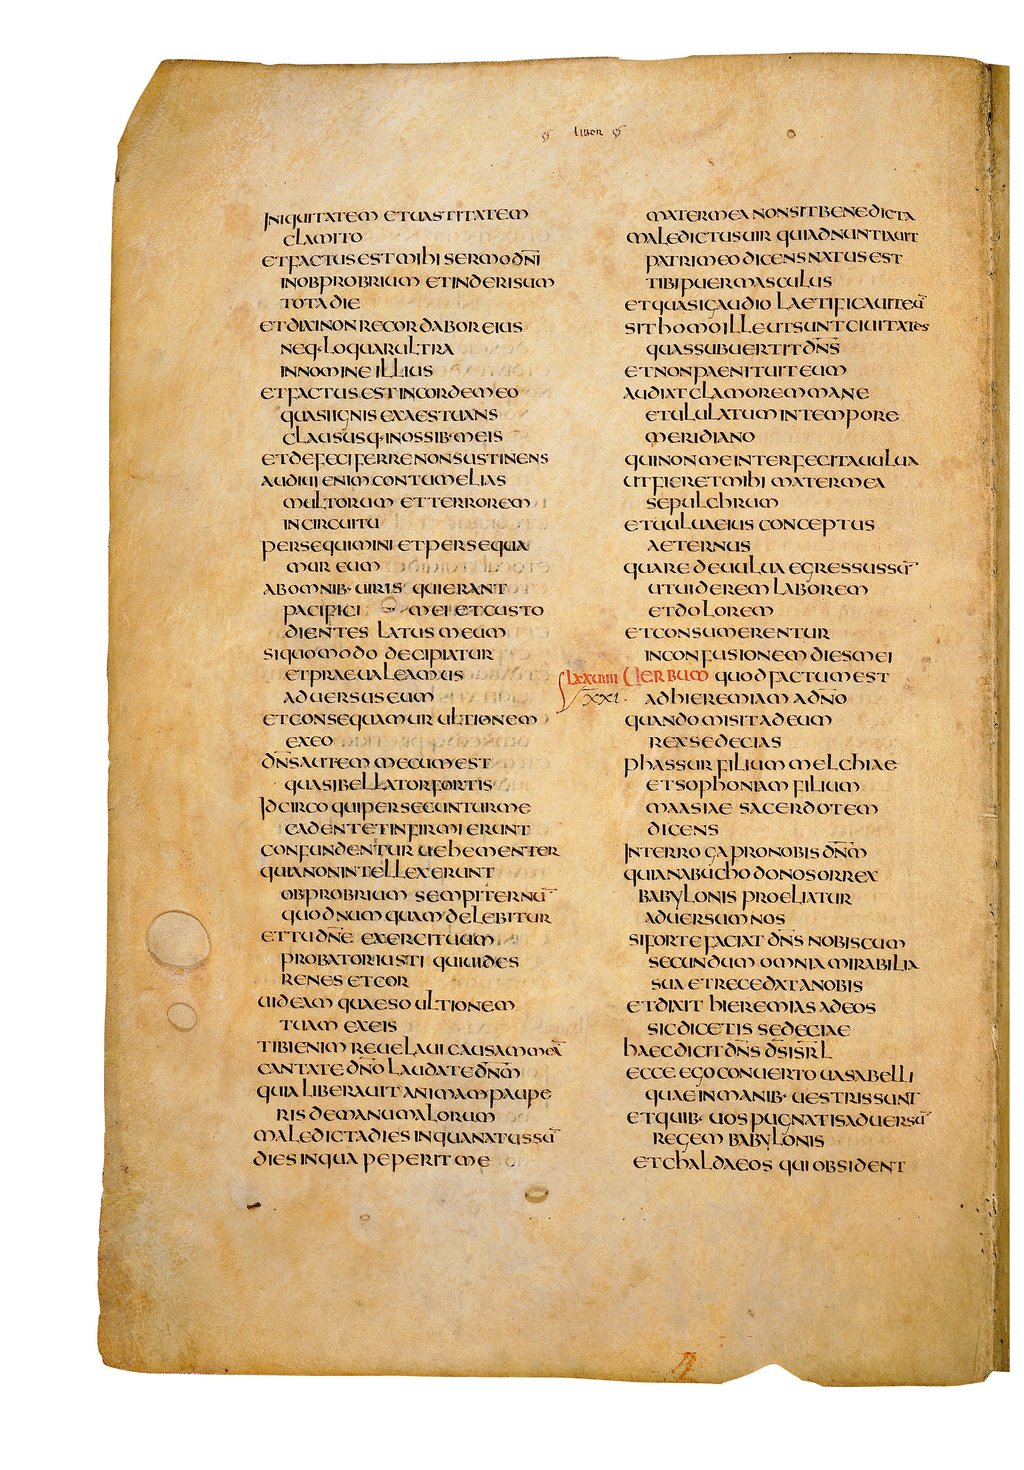 LIBER
INIQUITATEM ETUASTITATEM
CLAMITO
ETFACTUSEST MIHI SERMO DN̄I
INOBPROBRIUM ETINDERISUM
TOTA DIE
ETDIXINONRECORDABOREIUS
NEQ·LOQUARULTRA
INNOMINE ILLIUS
ETFACTUSESTINCORDEMEO
QUASIIGNIS EXAESTUANS
CLAUSUSQ·INOSSIB·MEIS
ETDEFECIFERRENONSUSTINENS
AUDIUIENIMCONTUMELIAS
MULTORUM ETTERROREM
INCIRCUITU
PERSEQUIMINIETPERSEQUA
MUR EUM
ABOMNIB·UIRIS QUIERANT
PACIFICI MEI ETCUSTO
DIENTES LATUSMEUM
SIQUOMODO DECIPIATUR
ETPRAEUALEAMUS
ADUERSUSEUM
ETCONSEQUAMUR ULTIONEM
EXEO
DN̄SAUTEM MECUMEST
QUASIBELLATORFORTIS
IDCIRCO QUIPERSECUNTURME
CADENTETINFIRMIERUNT
CONFUNDENTUR UEHEMENTER
QUIANONINTELLEXERUNT
OBPROBRIUM SEMPITERNŪ
QUODNUMQUAMDELEBITUR
ETTUDN̄E EXERCITUUM
PROBATORIUSTI QUIUIDES
RENES ETCOR
UIDEAM QUAESO ULTIONEM
TUAM EXEIS
TIBIENIM REUELAUI CAUSAMMEĀ
CANTATE DN̄O LAUDATE DN̄M
QUIALIBERAUITANIMAMPAUPE
RIS DEMANUMALORUM
MALEDICTADIES INQUANATUSSŪ
DIES INQUA PEPERITME
MATERMEA NONSITBENEDICTA
MALEDICTUSUIR QUIADNUNTIAUIT
PATRIMEODICENSNATUSEST
TIBIPUERMASCULUS
ETQUASIGAUDIO LAETIFICAUITEŪ
SITHOMOILLEUTSUNTCIUITATES
QUASSUBUERTITDN̄S
ETNONPAENITUITEUM
AUDIATCLAMOREMMANE
ETULULATUMINTEMPORE
MERIDIANO
QUINONMEINTERFECITAUULUA
UTFIERETMIHI MATERMEA
SEPULCHRUM
ETUULUAEIUS CONCEPTUS
AETERNUS
QUAREDEUULUA EGRESSUSSŪ
UTUIDEREM LABOREM
ETDOLOREM
ETCONSUMERENTUR
INCONFUSIONEM DIESMEI
LXXUIIII UERBUM QUODFACTUMEST
XXI· ADHIEREMIAM ADN̄O
QUANDOMISITADEUM
REXSEDECIAS
PHASSURFILIUMMELCHIAE
ETSOPHONIAM FILIUM
MAASIAE SACERDOTEM
DICENS
INTERROGAPRONOBIS DN̄M
QUIANABUCHODONOSORREX
BABYLONIS PROELIATUR
ADUERSUMNOS
SIFORTEFACIAT DN̄S NOBISCUM
SECUNDUM OMNIAMIRABILIA
SUA ETRECEDATANOBIS
ETDIXIT HIEREMIAS ADEOS
SICDICETIS SEDECIAE
HAECDICITDN̄S DS̄ISR̄L
ECCE EGOCONUERTO UASABELLI
QUAEINMANIB· UESTRISSUNT
ETQUIB· UOSPUGNATISADUERSŪ
REGEM BABYLONIS
ETCHALDAEOS QUIOBSIDENT